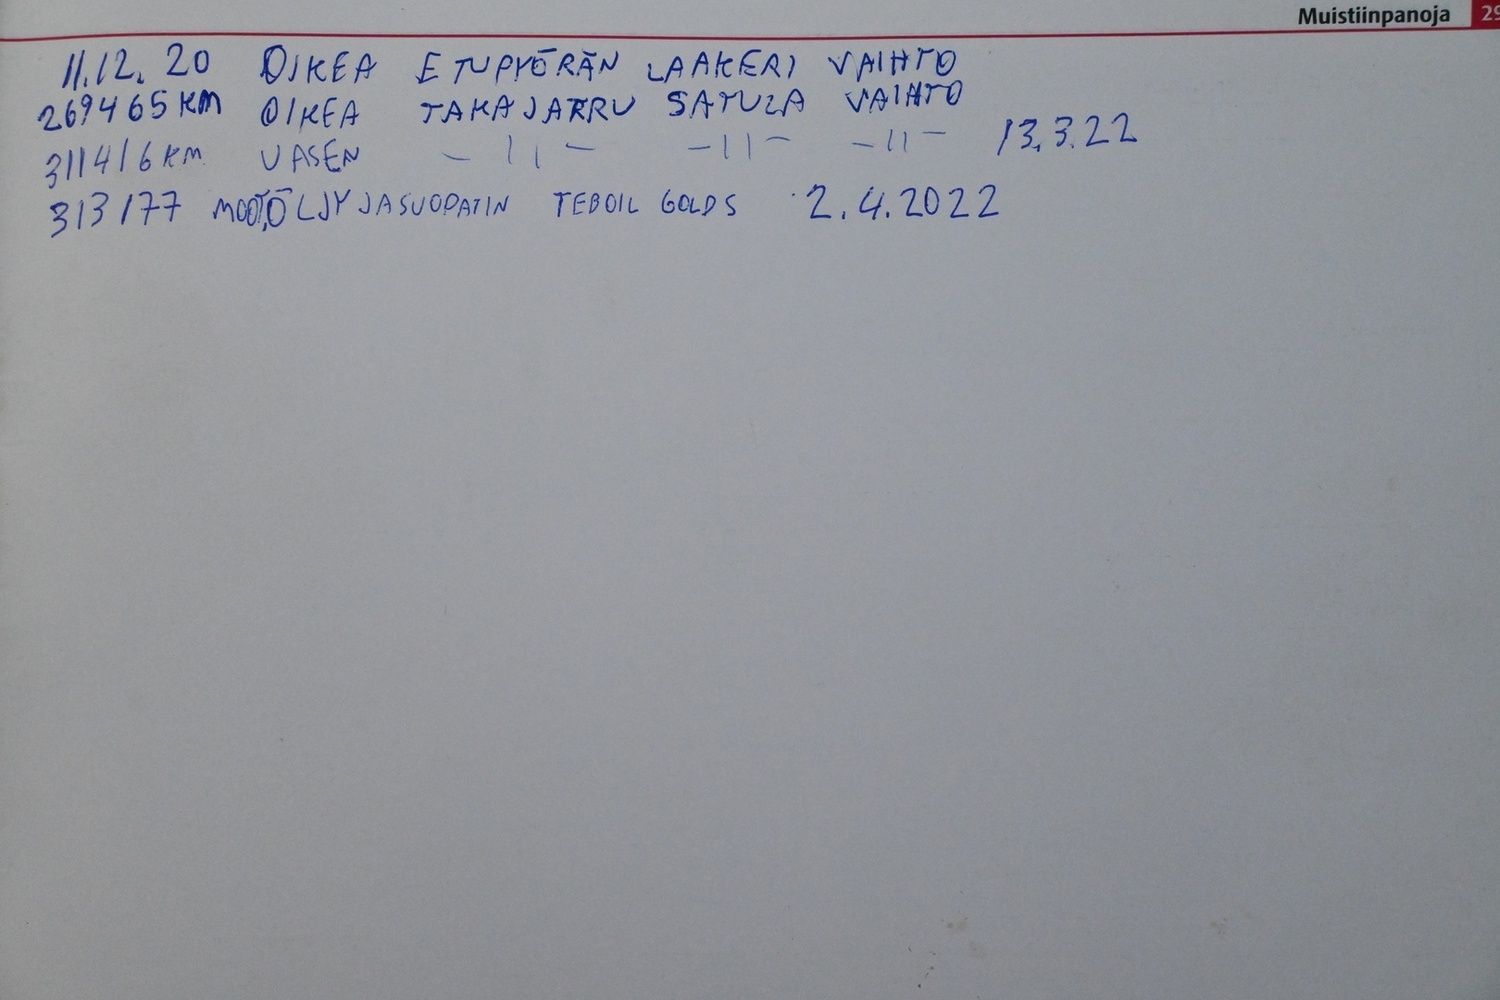 Muistiinpanoja 29
11.12. 20 OIKEA ETUPYÖRÄN LAAKERI VAIHTO
269465 KM OIKEA TAKAJARRU SATULA VAIHTO
311416 KM VASEN -||- -||- -||- 13.3.22
313177 MOOT.ÖLJY JASUODATIN TEBOIL GOLD S 2.4.2022